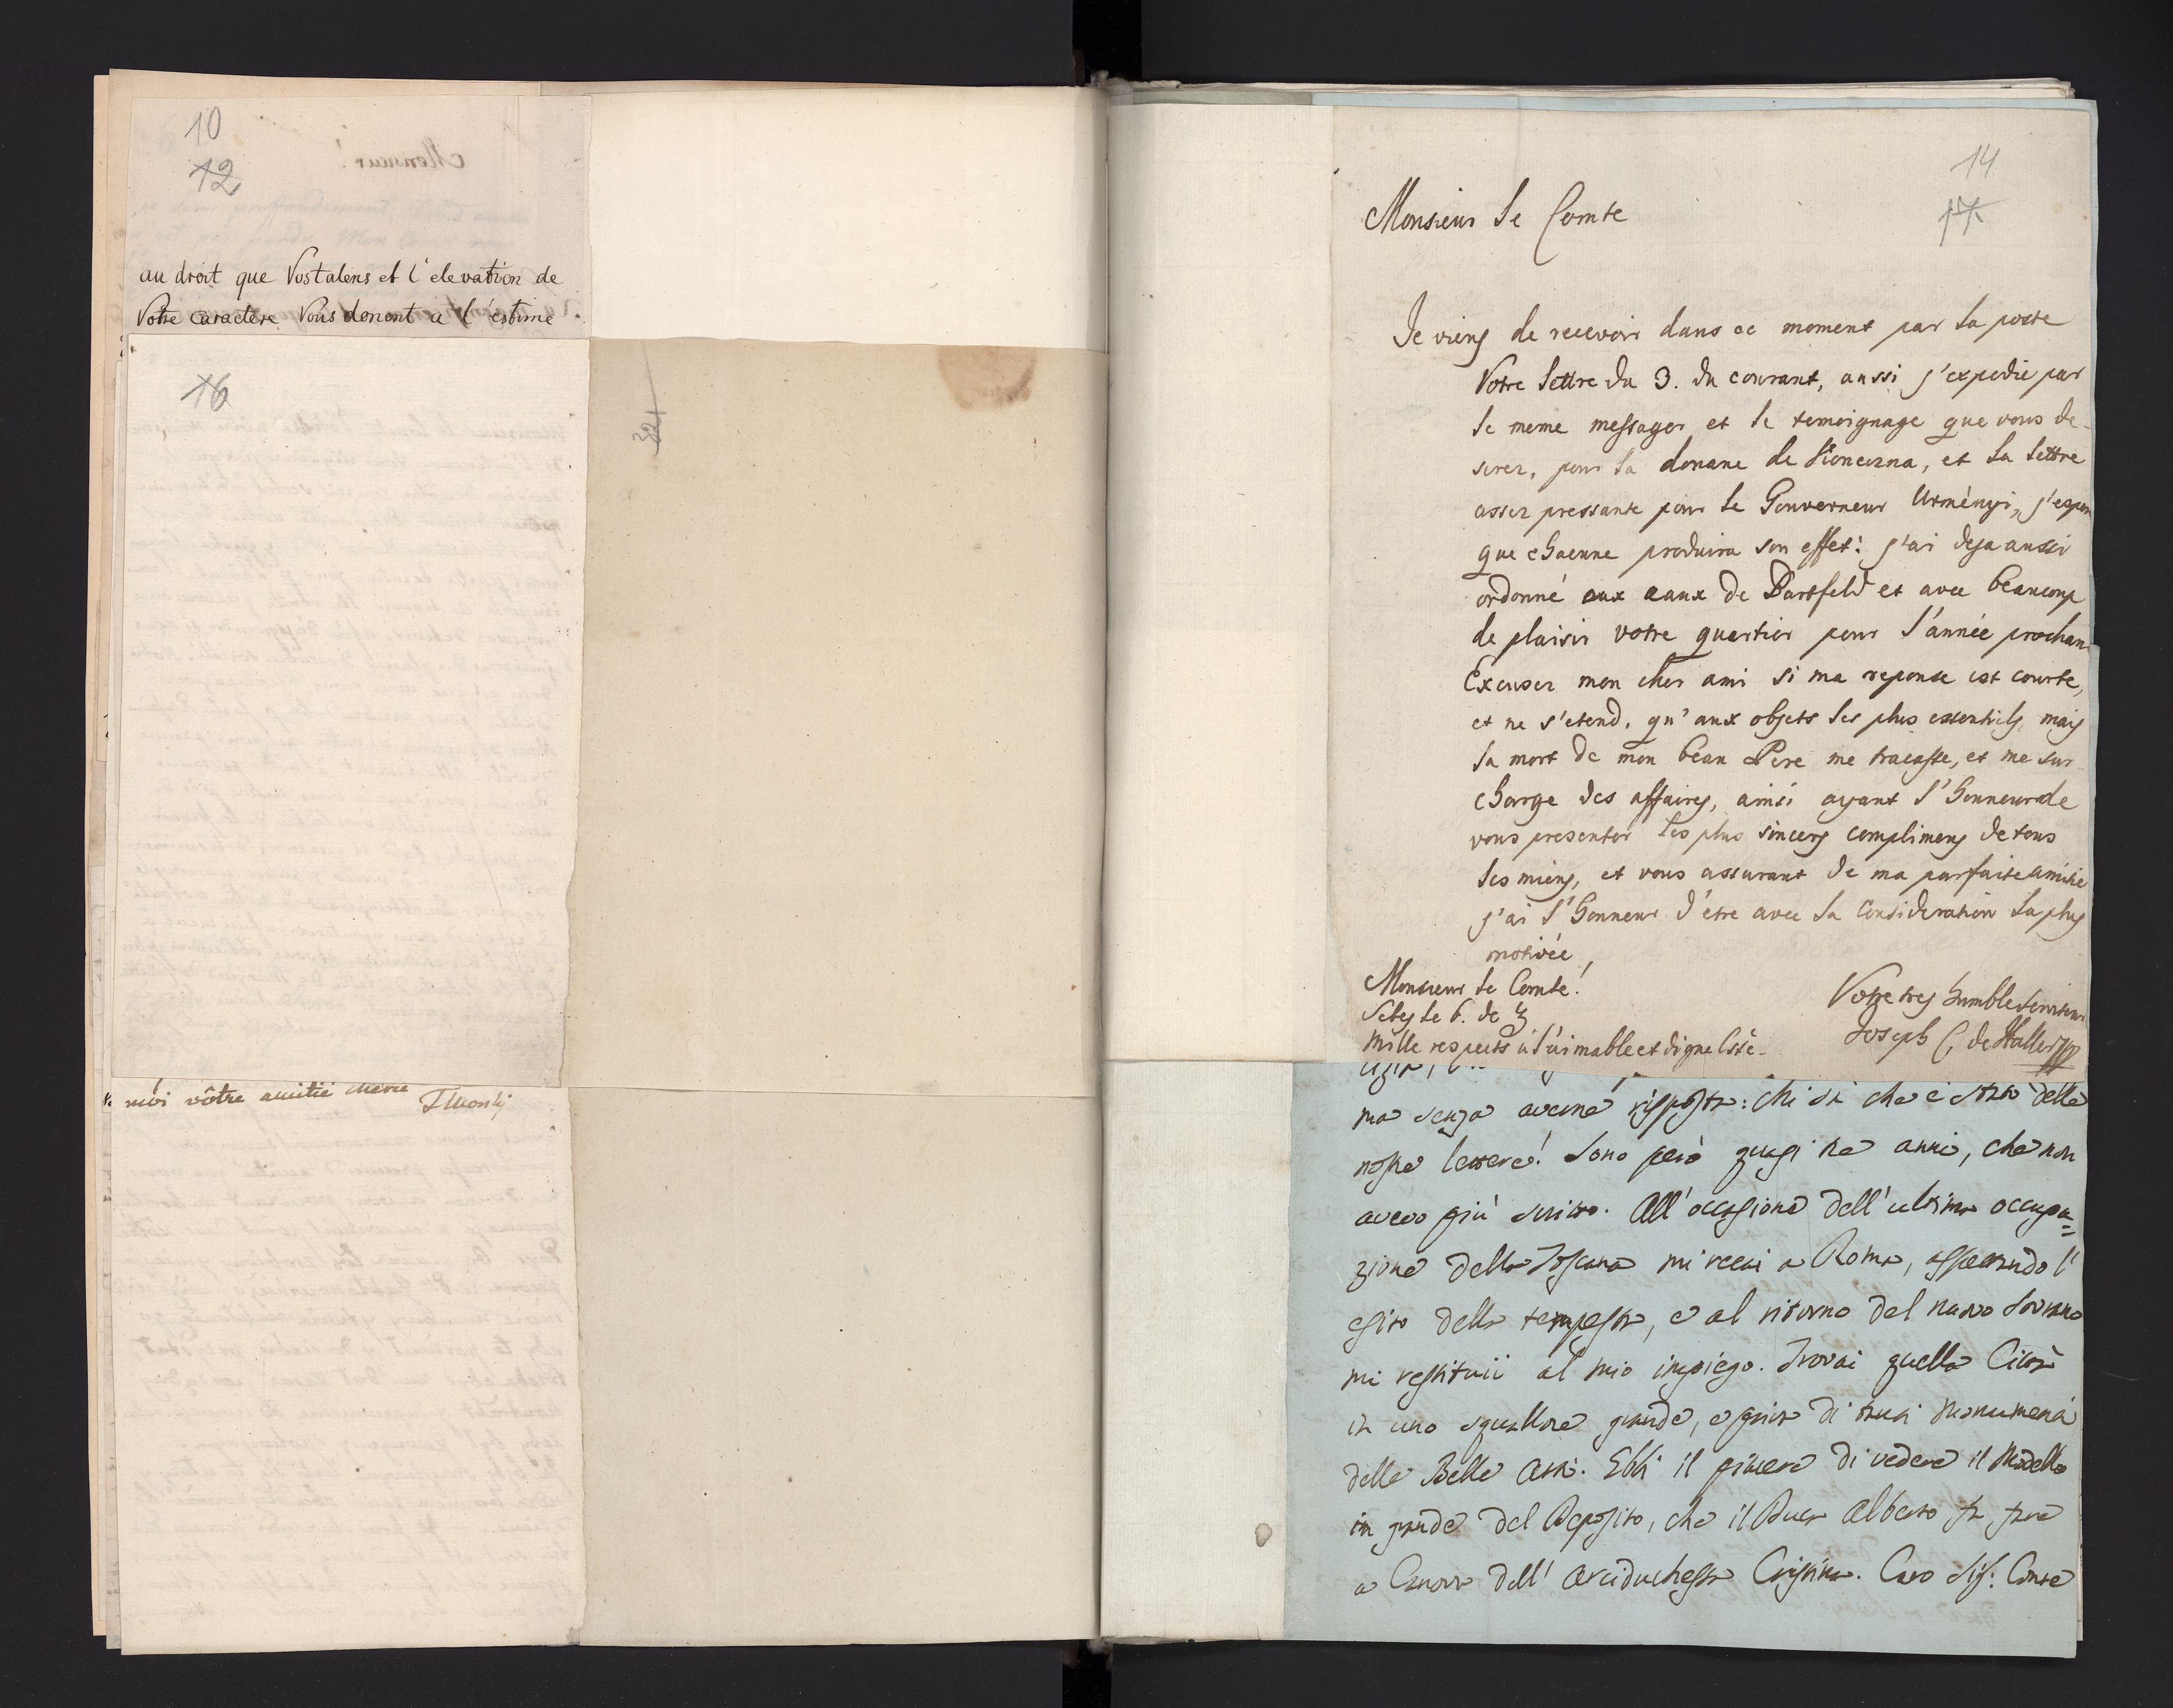 10
12
au droit que Vos talens et l'elevation de
Votre caractere Vous donent a l'estime
16
moi vôtre amitié chere
321
14
17
Monsieur le Comte
Je viens de recevoir dans ce moment par la poste
Votre lettre du 3. du courant, aussi j'expedie par
le meme messager et le temoignage que vous de-
sirez, pour la douane de
assez pressante pour le Gouverneur Urmènyi, j'esper
que chacune produira son effet: j'ai deja aussi
ordonné aux eaux de Bartfeld et avec beaucoup
de plaisir votre quartier pour l'année prochain
Excusez mon cher ami si ma reponse est courte,
et ne s'etend, qu'aux objets les plus essentiels, mais
la mort de mon beau Pere me tracasse, et me sur
charge des affaires, ainsi ayant l'honneur de
vous presenter les plus sincers complimens de tous
les miens, et vous assurant de ma parfaite amitié
j'ai l'honneur d'etre avec la consideration la plus
motivée,
Monsieur le Comte!
Votre tres humble serviteur
le 6. de
Joseph C. de Haller
Mille respects à l'aimable et digne
ma senza averne risposta: chi sa che è stato delle
nostre lettere! Sono però quasi tre anni, che non
avevo più scritto. All'occasione dell'ultima occupa=
zione della Toscana mi recai a Roma, aspettando l'
esito della tempesta, e al ritorno del nuovo Sovrano
mi restituii al mio impiego. Trovai quella Città
in uno squallore grande, e priva di tanti Monumenti
delle Belle Arti. Ebbi il piacere di vedere il Modello
in grande del Deposito, che il Duca Alberto fa fare
a Canova dell' Arciduchessa Cristina. Caro Sig: Conte